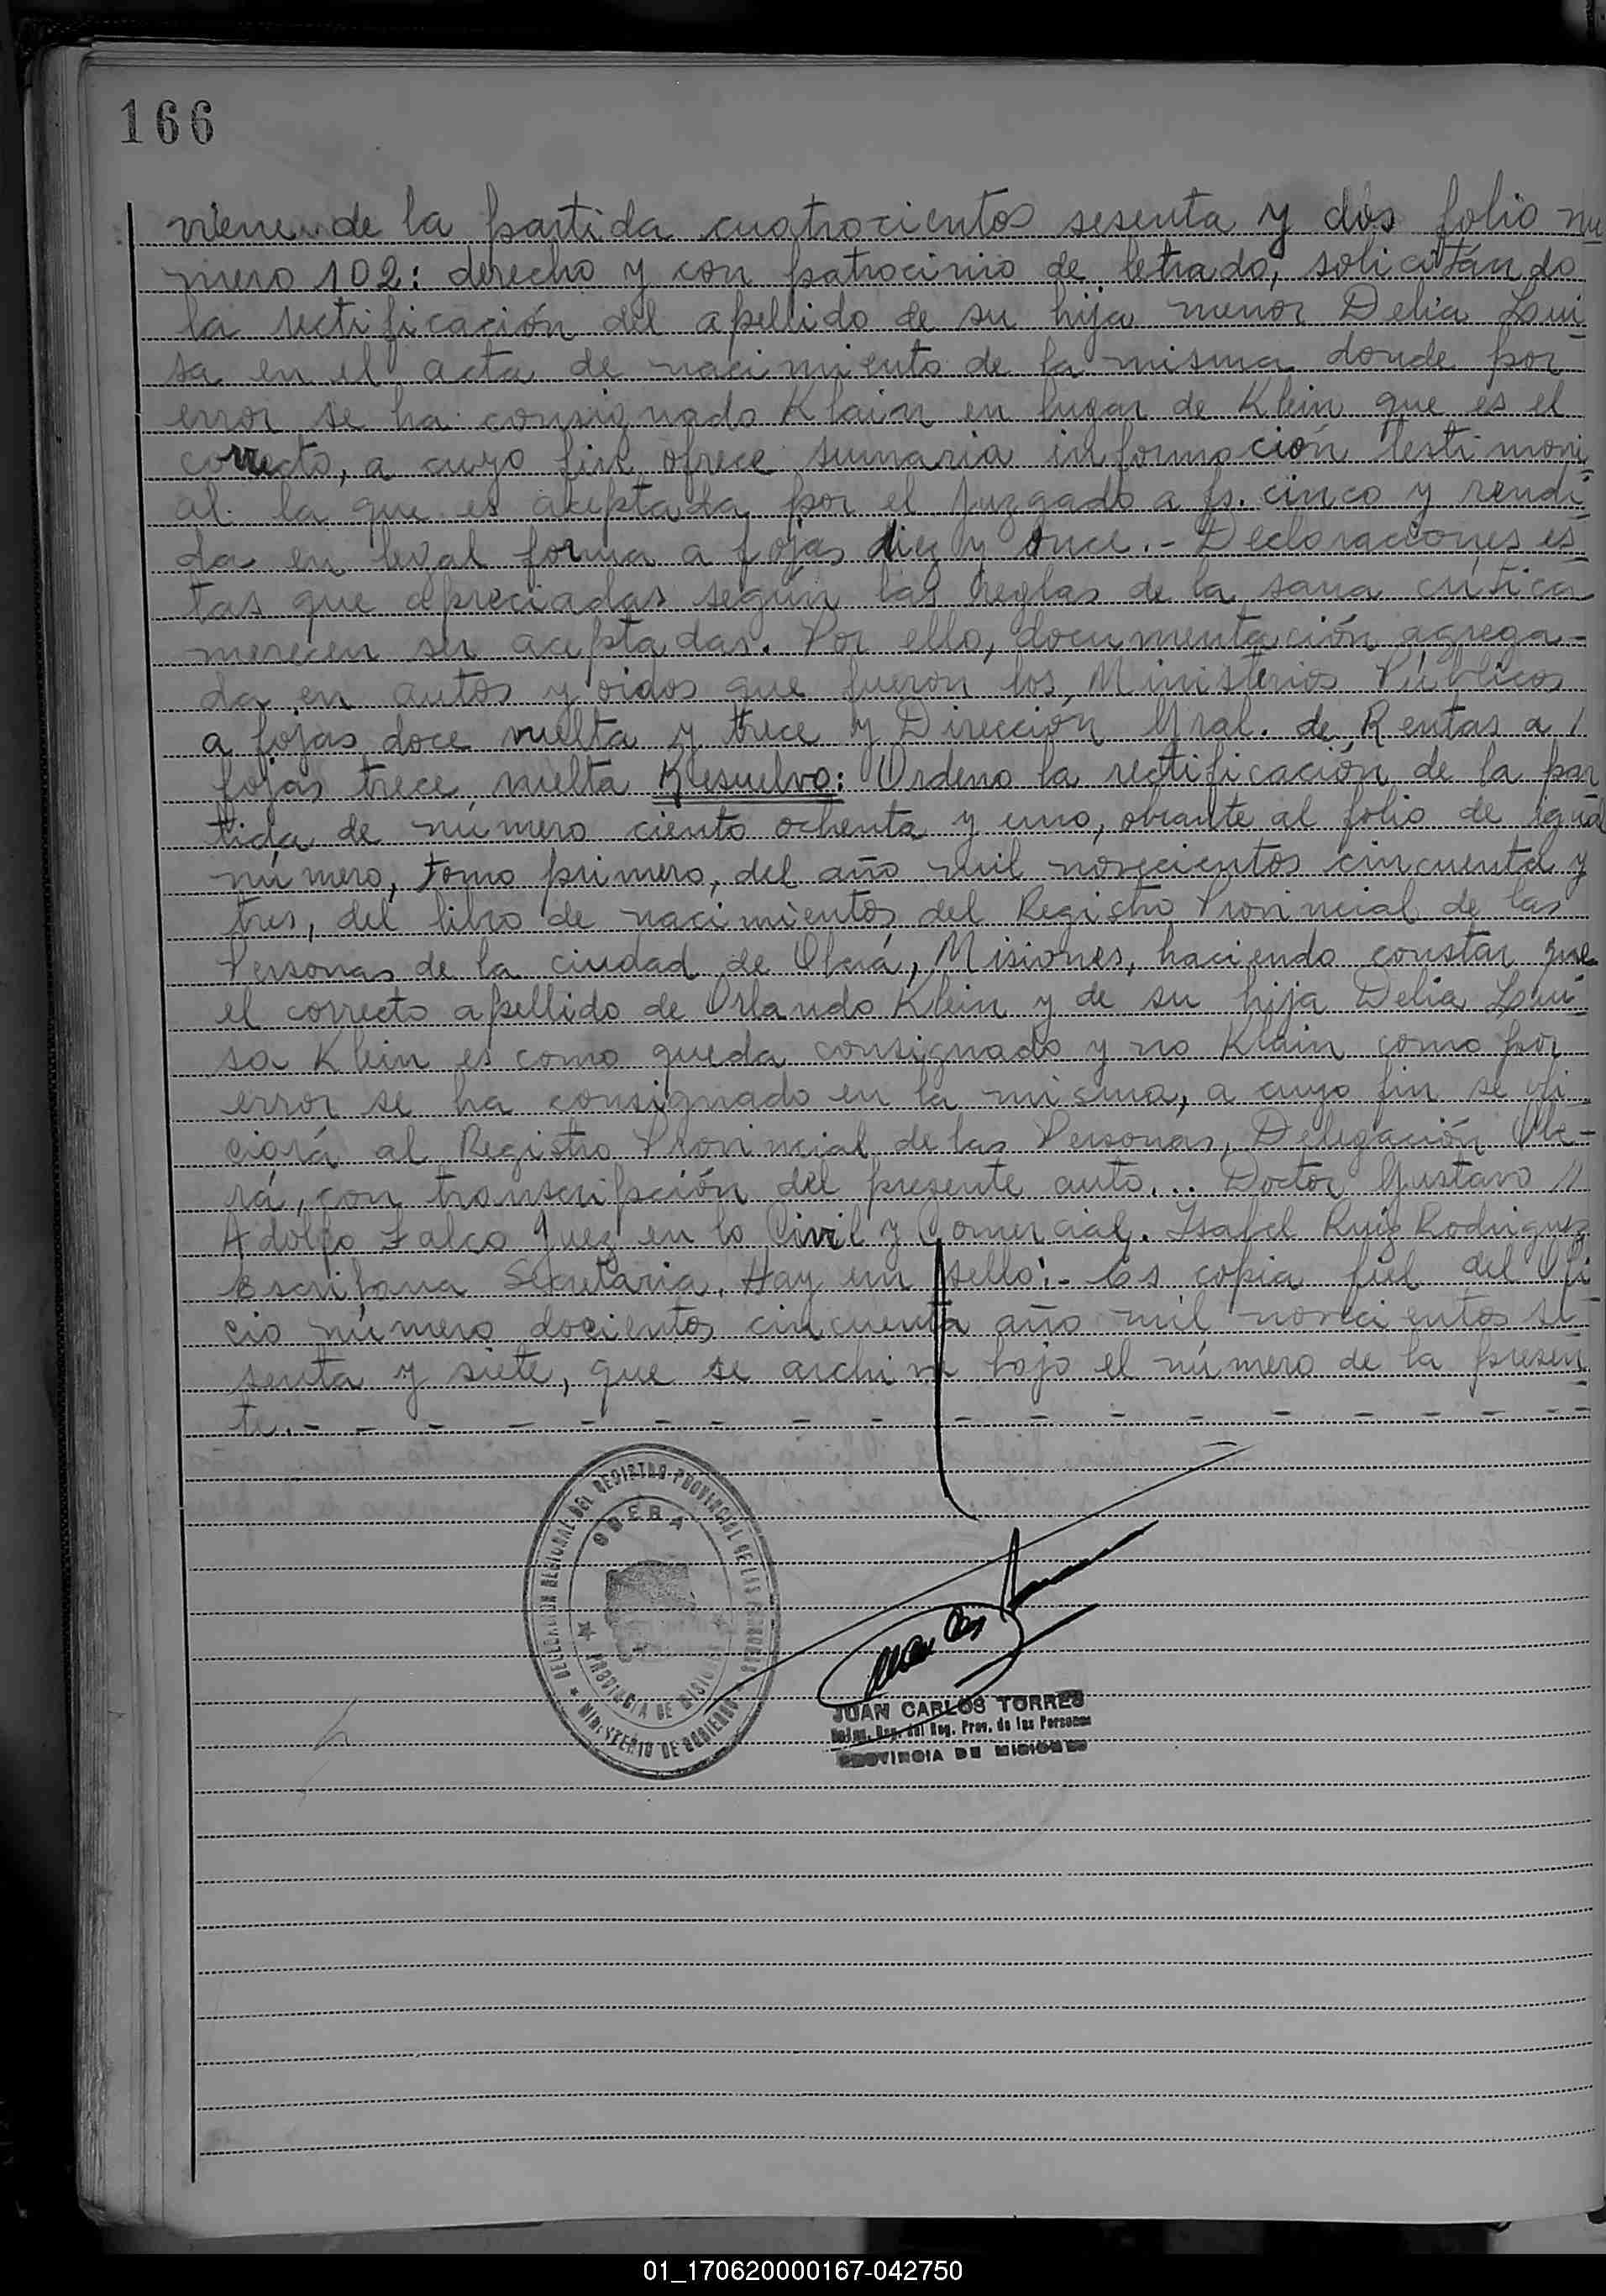 166
viene de la partida cuatrocientos sesenta y dos folio nu
mero 102: derecho y con patrocinio de letrado, solicitando
la rectificación del apellido de su hija menor Delia Lui
sa en el acta de nacimiento de la misma donde por
error se ha consignado Klain en lugar de Klein que es el
correcto, a cuyo fin ofrece sumaria información testimoni
al la que es aceptada por el Juzgado a fs. cinco y rendi
da en legal forma a fojas diez y once.- Declaraciones es
tas que apreciadas según las reglas de la sana crítica
merecen ser aceptadas. Por ello, documentación agrega-
da en autos y oidos que fueron los Ministerios Públicos
a fojas doce vuelta y trece y Dirección Gral. de Rentas a /
fojas trece vuelta Resuelvo: Ordeno la rectificación de la par
tida de número ciento ochenta y uno, obrante al folio de igual
número, tomo primero, del año mil novecientos cincuenta y
tres, del libro de nacimientos del Registro Provincial de las
Personas de la ciudad de Oberá, Misiones, haciendo constar que
el correcto apellido de Orlando Klein y de su hija Delia Lui
sa Klein es como queda consignado y no Klain como por
error se ha consignado en la misma, a cuyo fin se ofi
ciará al Registro Provincial de las Personas, Delegación Obe-
rá, con transcripción del presente auto... Doctor Gustavo //
Adolfo Falco Juez en lo Civil y Comercial. Isabel Ruiz Rodriguez
Escribana Secretaria. Hay un sello:- Es copia fiel del Ofi
cio número docientos cincuenta año mil novecientos se
senta y siete, que se archiva bajo el número de la presen
te. - - - - - - - - - - - - - - - - - -
DELEGACION REGIONAL DEL REGISTRO PROVINCIAL DE LAS PERSONAS
OBERA
PROVINCIA DE MISIONES
MINISTERIO DE GOBIERNO
JUAN CARLOS TORRES
Reg. del Reg. Prov. de las Personas
PROVINCIA DE MISIONES
01_170620000167-042750